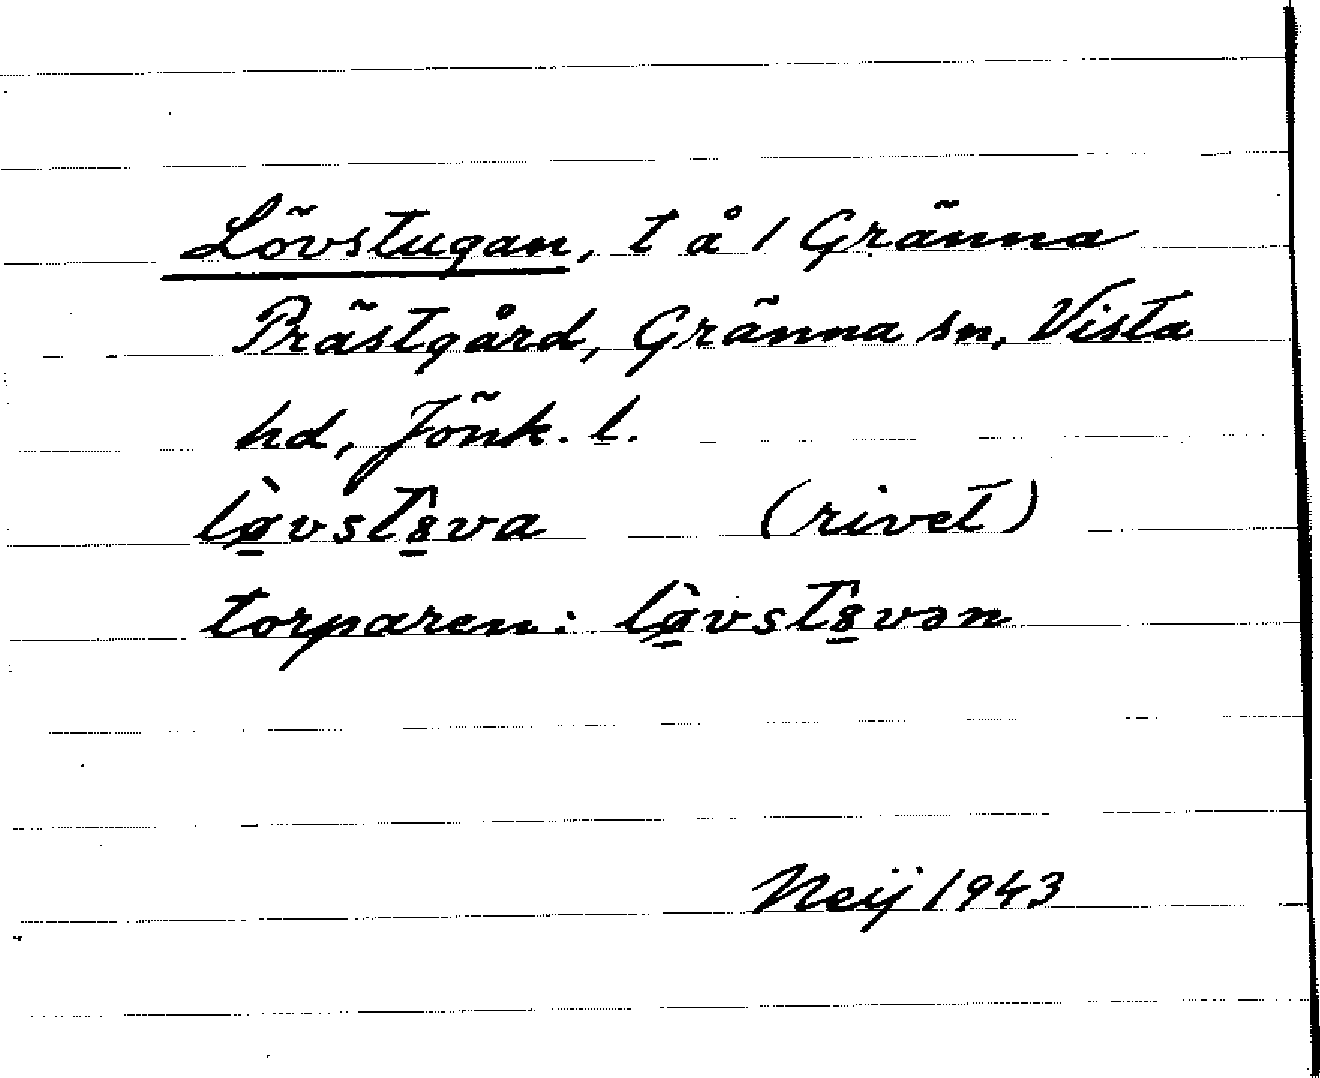 Lövstugan, t å 1 Gränna
Prästgård, Gränna sn, Vista
hd, Jönk. l.
(rivet)
torparen:
Neij 1943